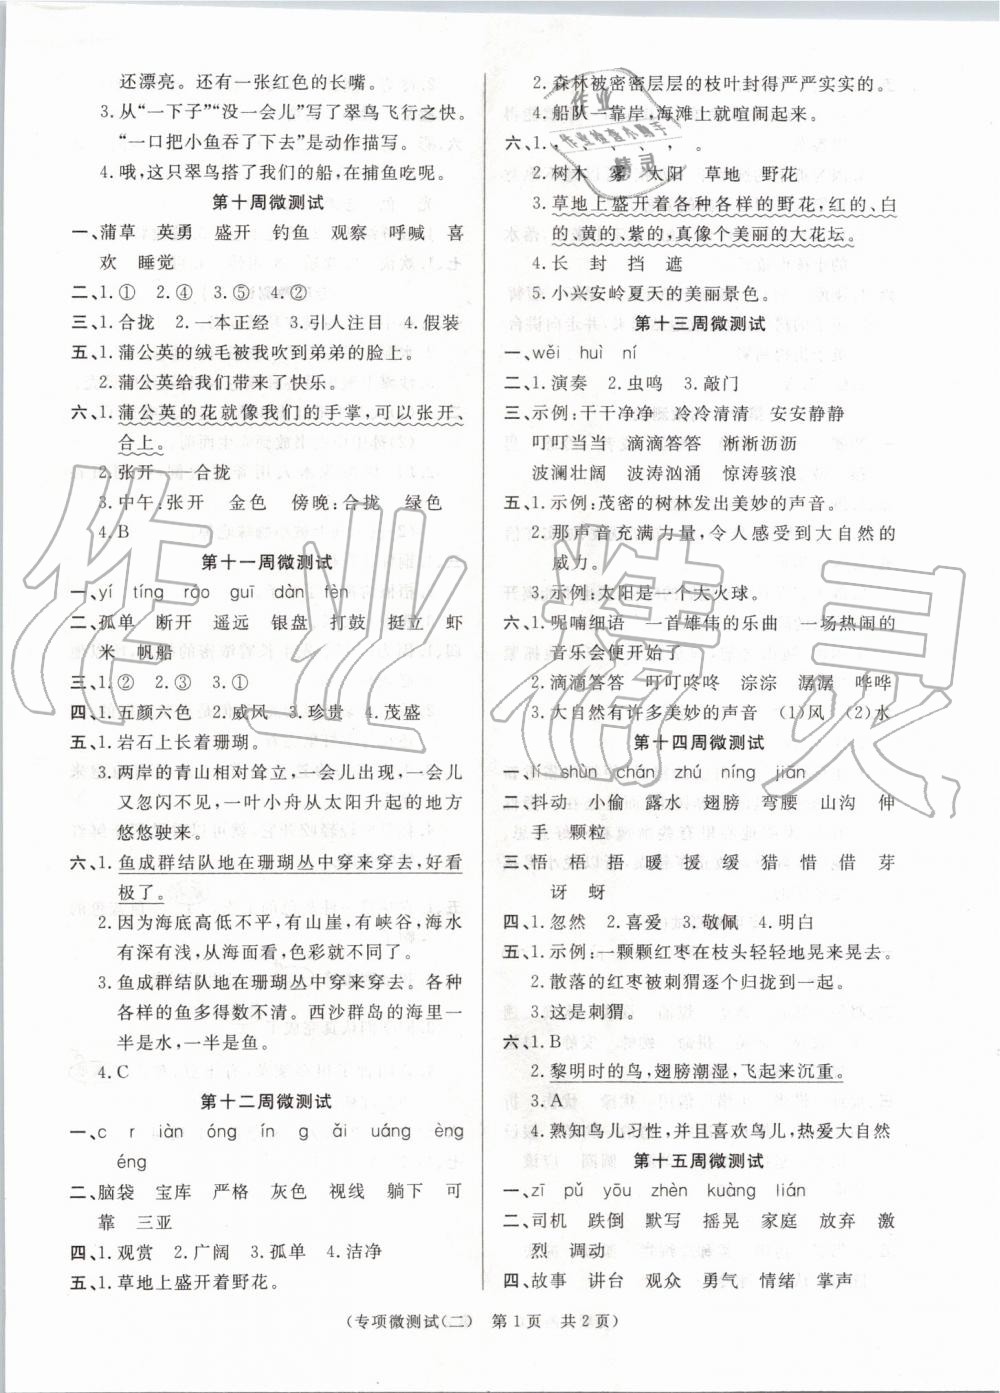 还漂亮。还有一张红色的长嘴。
3.从“一下子”“没一会儿”写了翠鸟飞行之快。
“一口把小鱼吞了下去”是动作描写。
4.哦,这只翠鸟搭了我们的船,在捕鱼吃呢。
第十周微测试
一、蒲草 英勇 盛开 钓鱼 观察 呼喊 喜
欢 睡觉
二、1.① 2.④ 3.⑤ 4.②
三、1.合拢 2.一本正经 3.引人注目 4.假装
五、1.蒲公英的绒毛被我吹到弟弟的脸上。
2.蒲公英给我们带来了快乐。
六、1.蒲公英的花就像我们的手掌,可以张开
合上。
2.张开——合拢
3.中午:张开 金色 傍晚:合拢 绿色
4.B
第十一周微测试
一、yí tíng rào guī dàn fèn
二、孤单 断开 遥远 银盘 打鼓 挺立 虾
米 帆船
三、1.② 2.③ 3.①
四、1.五颜六色 2.威风 3.珍贵 4.茂盛
五、1.岩石上长着珊瑚。
3.两岸的青山相对耸立,一会儿出现,一会儿
又忽闪不见,一叶小舟从太阳升起的地方
悠悠驶来。
六、1.鱼成群结队地在珊瑚丛中穿来穿去,好看
极了。
2.因为海底高低不平,有山崖,有峡谷,海水
有深有浅,从海面看,色彩就不同了。
3.鱼成群结队地在珊瑚丛中穿来穿去。各种
各样的鱼多得数不清。西沙群岛的海里一
半是水,一半是鱼。
4.C
第十二周微测试
一、c r iàn óng ín g ǎi uáng èng
éng
二、脑袋 宝库 严格 灰色 视线 躺下 可
靠 三亚
四、1.观赏 2.广阔 3.孤单 4.洁净
五、1.草地上盛开着野花。
2.森林被密密层层的枝叶封得严严实实的。
4.船队一靠岸,海滩上就喧闹起来。
六、1., 、 、 , 。
2.树木 雾 太阳 草地 野花
3.草地上盛开着各种各样的野花,红的、白
的、黄的、紫的,真像个美丽的大花坛。
4.长 封 挡 遮
5.小兴安岭夏天的美丽景色。
第十三周微测试
一、wěi huì ní
二、1.演奏 2.虫鸣 3.敲门
三、示例:干干净净 冷冷清清 安安静静
叮叮当当 滴滴答答 淅淅沥沥
波澜壮阔 波涛汹涌 惊涛骇浪
五、1.示例:茂密的树林发出美妙的声音。
2.那声音充满力量,令人感受到大自然的
威力。
3.示例:太阳是一个大火球。
六、1.呢喃细语 一首雄伟的乐曲 一场热闹的
音乐会便开始了
2.滴滴答答 叮叮咚咚 淙淙 潺潺 哗哗
3.大自然有许多美妙的声音 (1)风 (2)水
第十四周微测试
一、lí shùn chán zhú níng jiān
二、抖动 小偷 露水 翅膀 弯腰 山沟 伸
手 颗粒
三、悟 梧 暖 援 缓 猎 惜 借 芽
讶 蚜
四、1.忽然 2.喜爱 3.敬佩 4.明白
五、1.示例:一颗颗红枣在枝头轻轻地晃来晃去。
2.散落的红枣被刺猬逐个归拢到一起。
3.这是刺猬。
六、1.B
2.黎明时的鸟,翅膀潮湿,飞起来沉重。
3.A
4.熟知鸟儿习性,并且喜欢鸟儿,热爱大自然
第十五周微测试
一、zī pǔ yōu zhèn kuàng lián
二、司机 跌倒 默写 摇晃 家庭 放弃 激
烈 调动
四、故事 讲台 观众 勇气 情绪 掌声
(专项微测试(二) 第1页 共2页)
作业
作业检查小助手
精灵
作业精灵